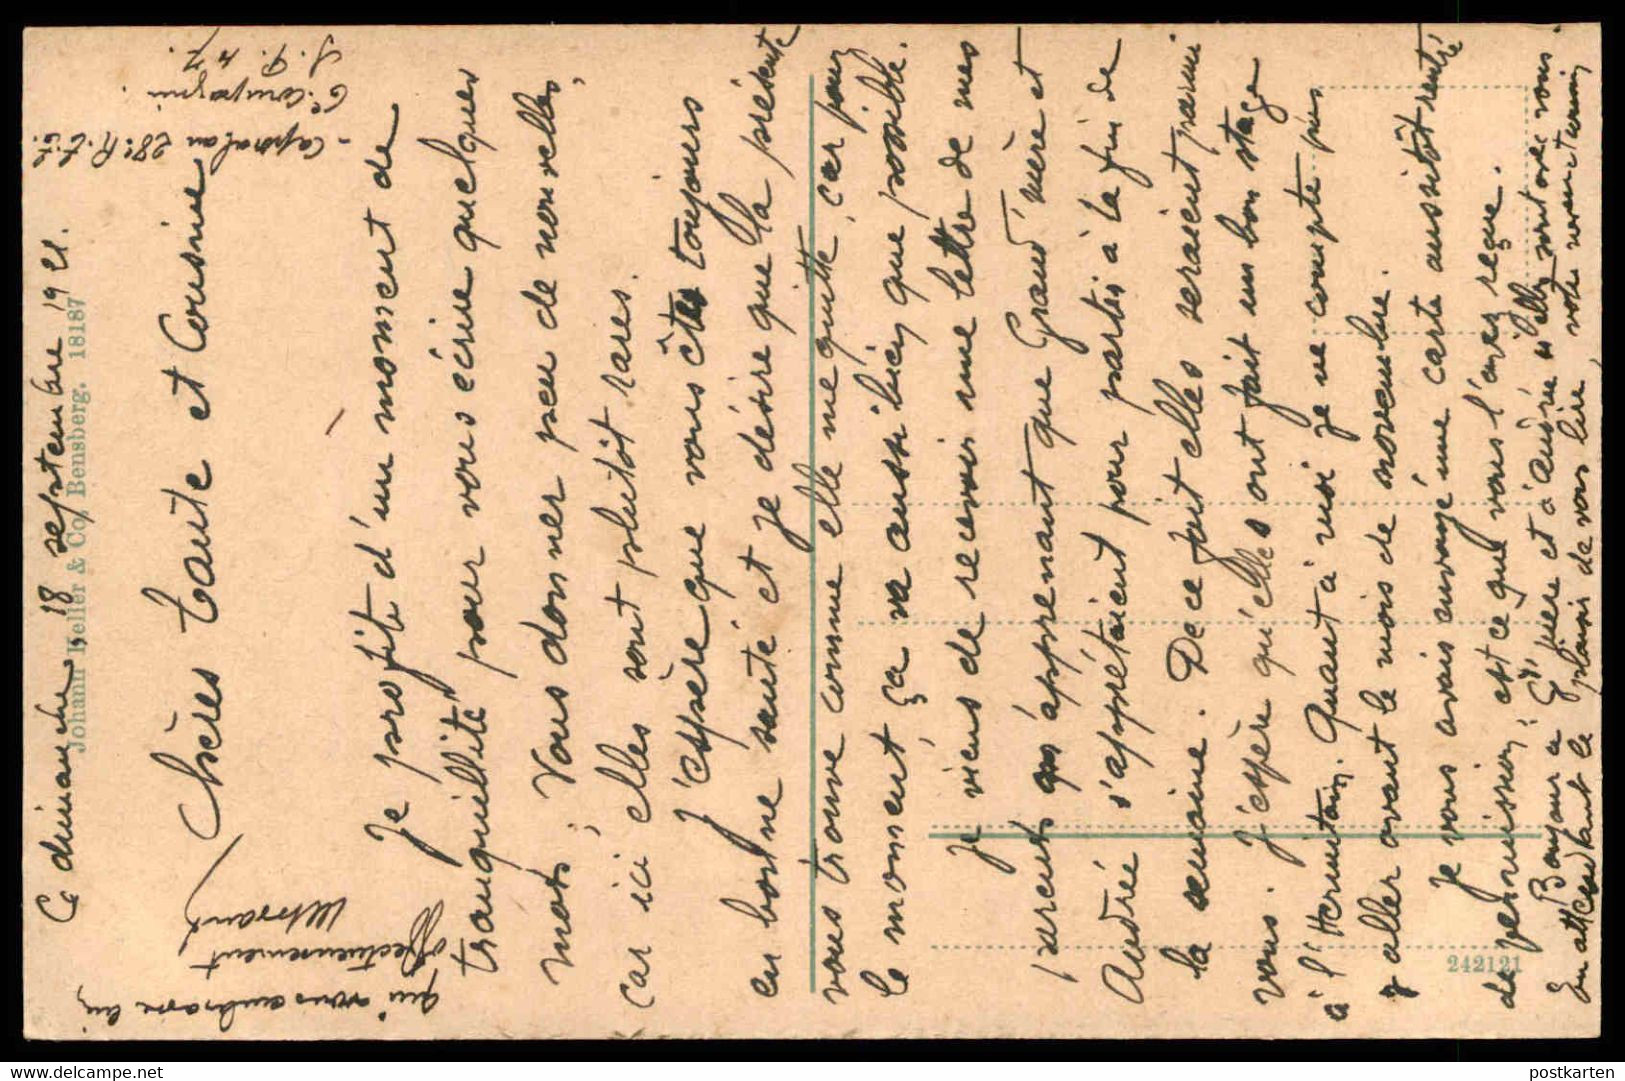 Ce dimanche 18 septembre 1921.
Johann Keller & Co, Bensberg. 18187
- Caporal au 28e R.
6e Compagnie
S. P. 47.
Chères Tante et Cousine
Je profite d'un moment de
tranquillité pour vous écrire quelques
mots. Vous donner peu de nouvelles,
car ici elles sont plutôt rares.
J'espère que vous êtes toujours
en bonne santé et je désire que la présente
vous trouve comme elle me quitte, car pour
le moment ça va aussi bien que possible.
Je viens de recevoir une lettre de mes
parents m'apprenant que Grand'mère et
Andrée s'apprêtaient pour partir à la fin de
la semaine. De ce fait elles seraient parmi
vous. J'espère qu'elles ont fait un bon stage
à l'Hermitain. Quant à moi je ne compte pas
y aller avant le mois de novembre.
Je vous avais envoyé une carte aussitôt rentré
de permission, est ce que vous l'avez reçue.
Bonjour à Gd mère et à Andrée si elles sont avec vous.
En attendant le plaisir de vous lire, votre
qui vous embrasse bien
affectueusement
242121
postkarten